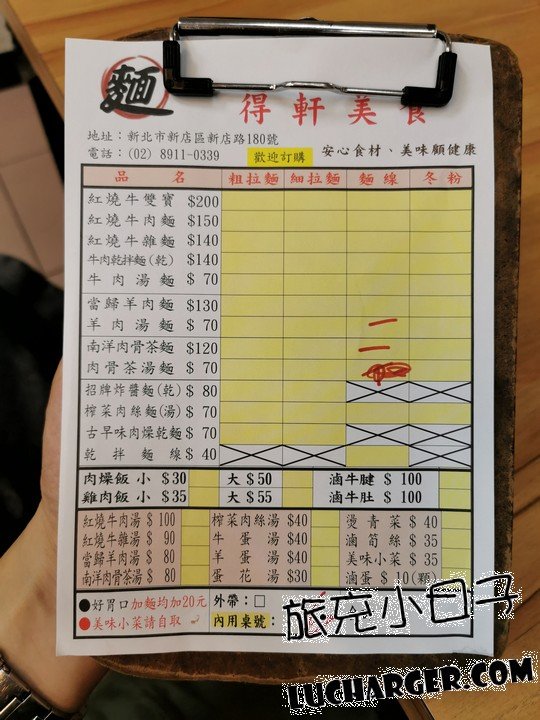 麵
得軒美食
地址：新北市新店區新店路180號
電話：(02) 8911-0339 歡迎訂購 安心食材、美味顧健康
品名 粗拉麵 細拉麵 麵線 冬粉
紅燒牛雙寶 $200
紅燒牛肉麵 $150
紅燒牛雜麵 $140
牛肉乾拌麵(乾) $140
牛肉湯麵 $ 70
當歸羊肉麵 $130
羊肉湯麵 $ 70
南洋肉骨茶麵 $120
肉骨茶湯麵 $ 70
招牌炸醬麵(乾) $ 80
榨菜肉絲麵(湯) $ 70
古早味肉燥乾麵 $ 70
乾拌麵線 $ 40
肉燥飯 小 $30 大 $50 滷牛腱 $ 100
雞肉飯 小 $35 大 $55 滷牛肚 $ 100
紅燒牛肉湯 $ 100 榨菜肉絲湯 $40 燙青菜 $ 40
紅燒牛雜湯 $ 90 牛蛋湯 $40 滷筍絲 $ 35
當歸羊肉湯 $ 80 羊蛋湯 $40 美味小菜 $ 35
南洋肉骨茶湯 $ 80 蛋花湯 $30 滷蛋 $ 10(顆)
●好胃口加麵均加20元 外帶：□
●美味小菜請自取 內用桌號：
旅充小日子
LUCHARGER.COM